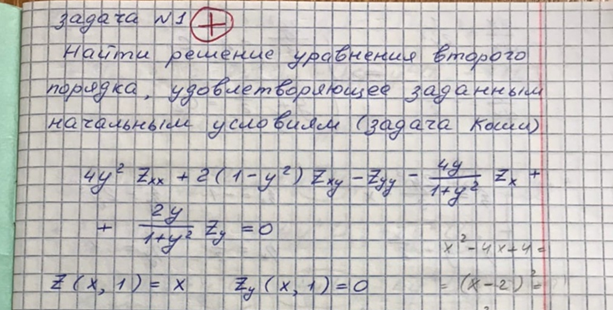 задача №1 +
Найти решение уравнения второго
порядка, удовлетворяющее заданным
начальным условиям (задача Коши)
4y² Zxx + 2(1-y²) Zxy - Zyy - 4y/(1+y²) Zx +
+ 2y/(1+y²) Zy = 0
x² - 4x + 4 =
= (x-2)² =
Z(x,1) = x Zy(x,1) = 0